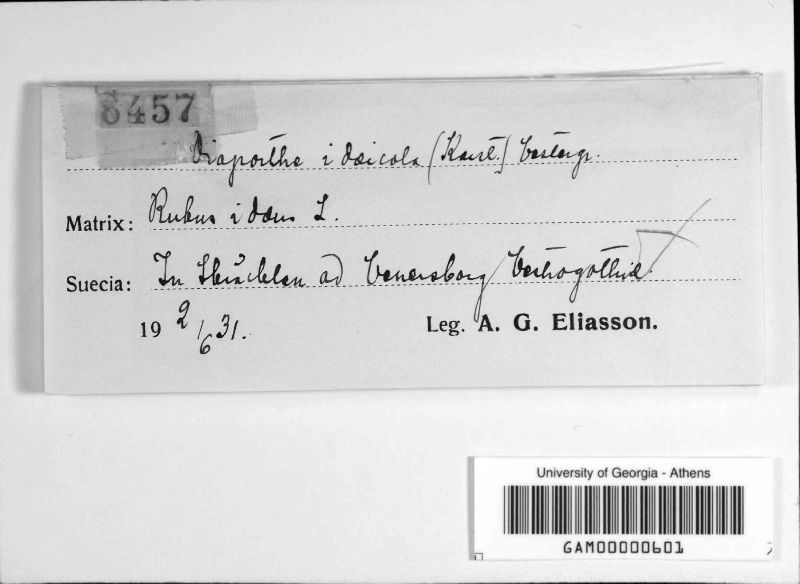 8457
Diaporthe idæicola (Karst.) Vestergr.
Matrix: Rubus idæus L.
Suecia: In ad Venersborg Vestrogothiæ.
19 2/6 31. Leg. A. G. Eliasson.
University of Georgia - Athens
GAM00000601